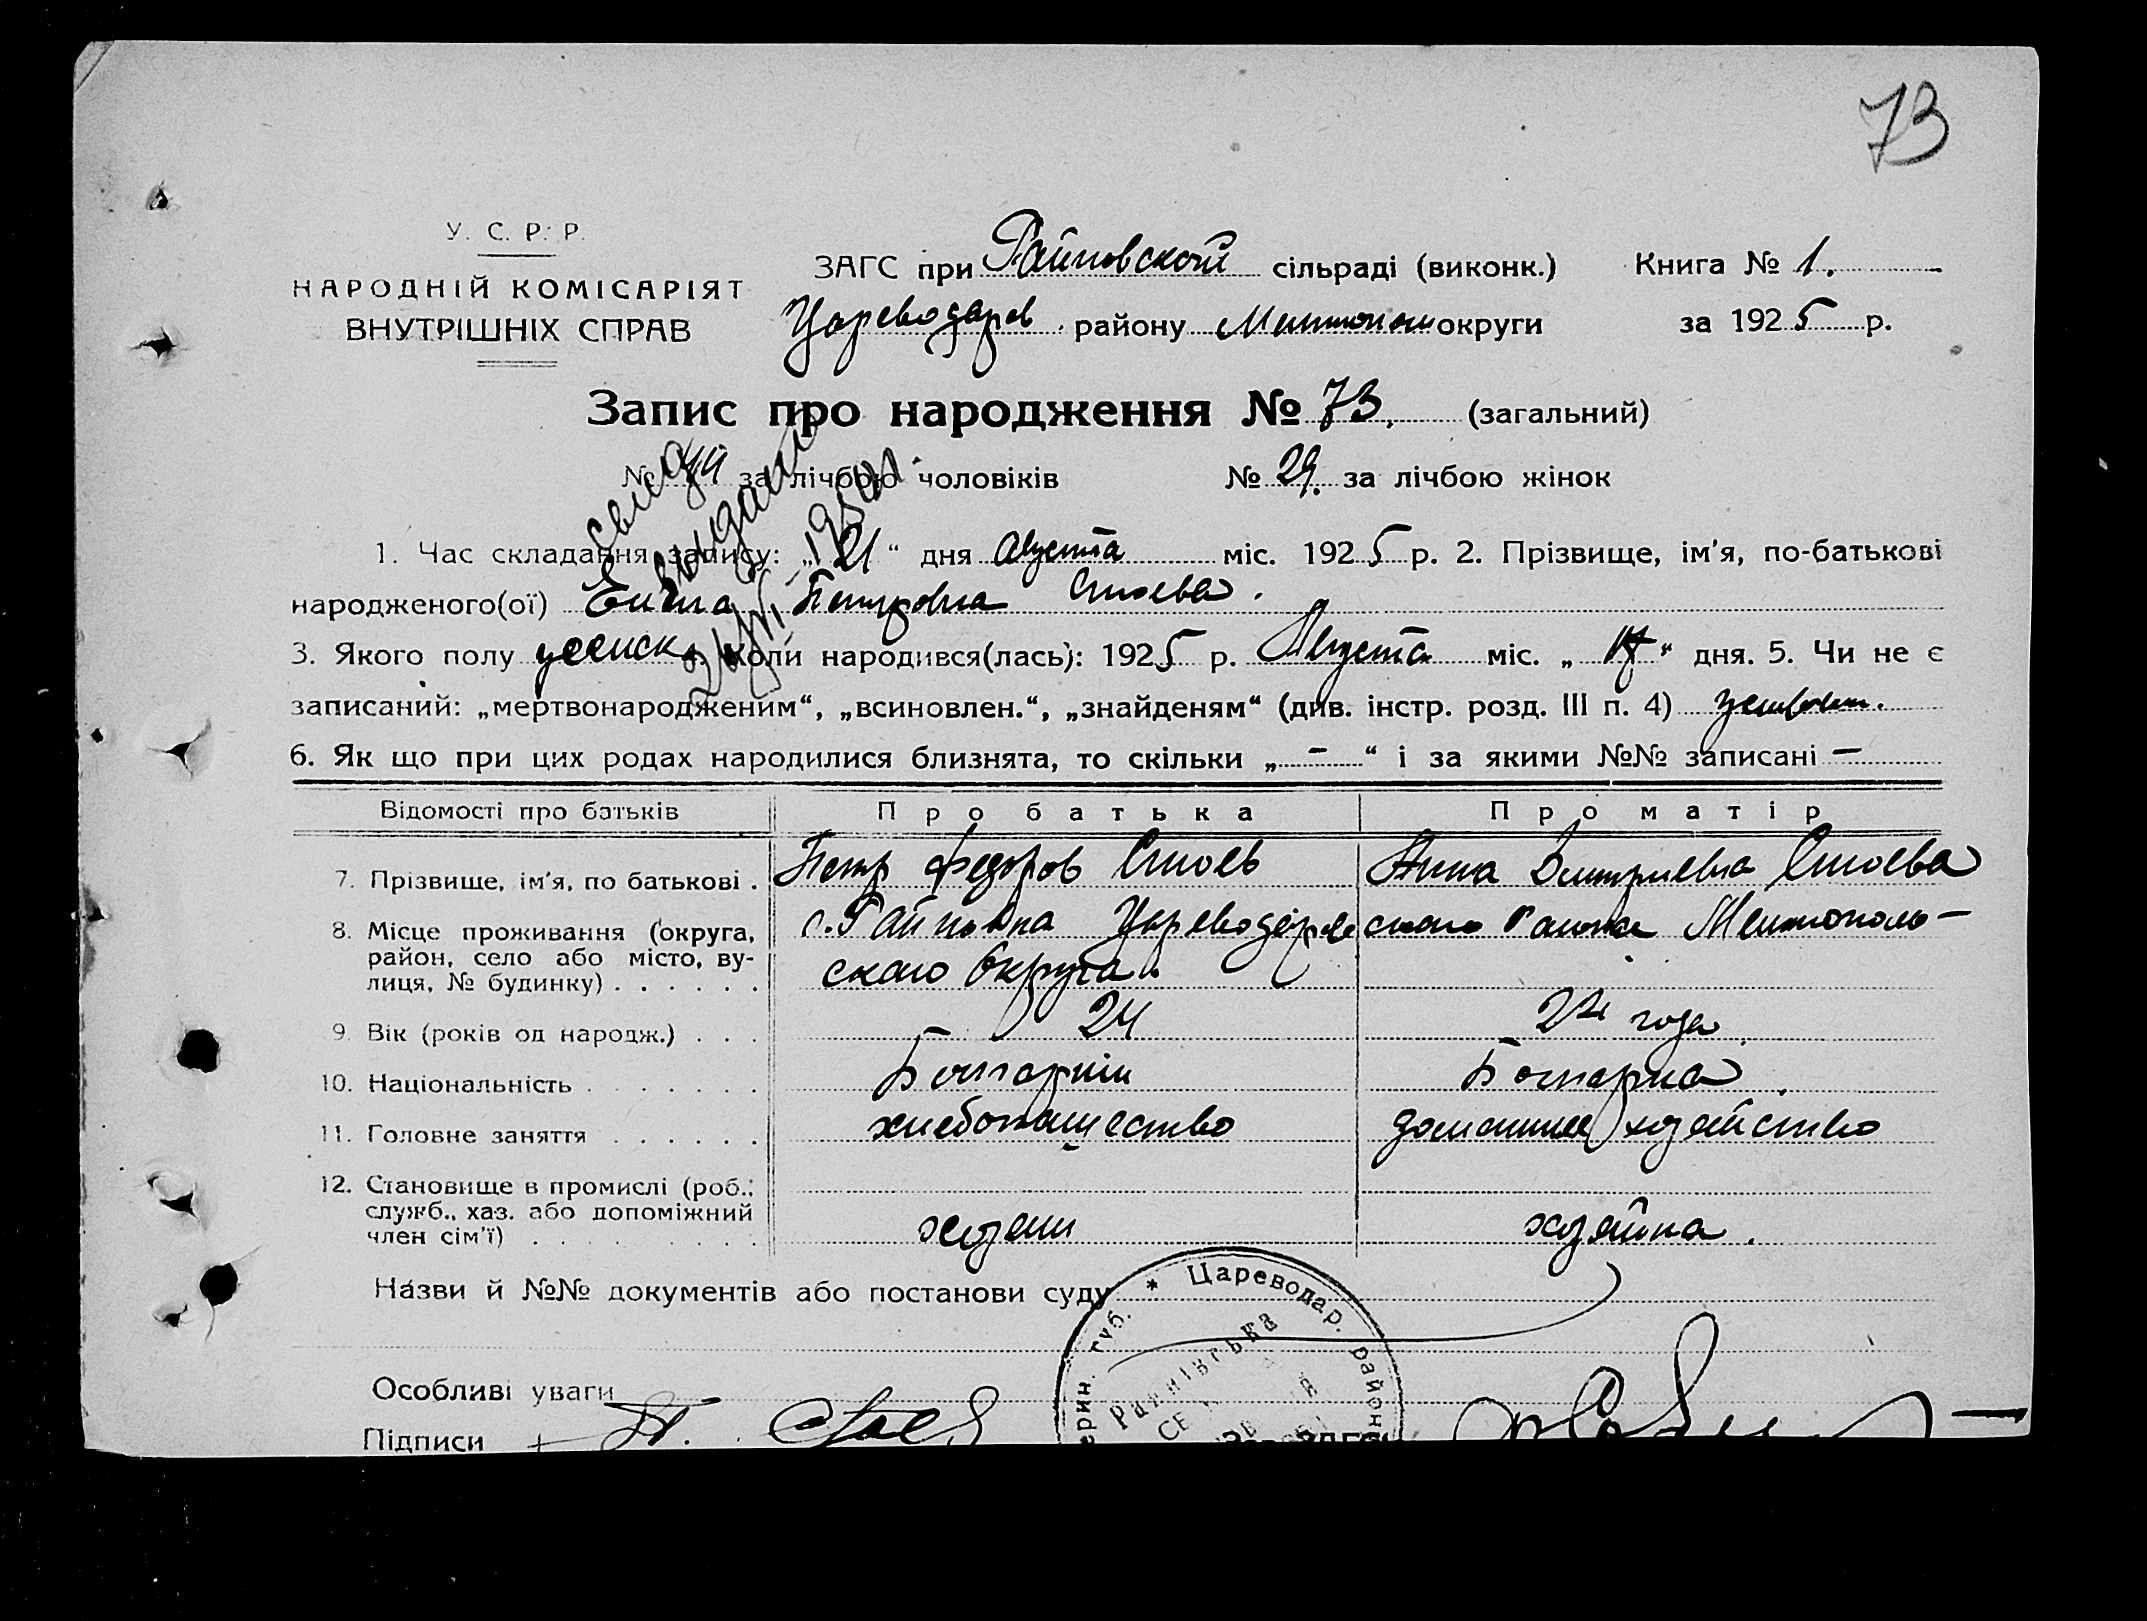 73
У. С. Р. Р.
НАРОДНІЙ КОМІСАРІЯТ
ВНУТРІШНІХ СПРАВ
ЗАГС при Райновской сільраді (виконк.) Книга № 1.
Цареводаров. району Мелитопол округи за 1925 р.
Запис про народження № 73. (загальний)
№ 44 за лічбою чоловіків № 29. за лічбою жінок
1. Час складання запису: „21“ дня Августа міс. 1925 р. 2. Прізвище, ім'я, по-батькові
народженого(ої) Елена Петровна Стоева.
3. Якого полу женск коли народився(лась): 1925 р. Августа міс. „17“ дня. 5. Чи не є
записаний: „мертвонародженим“, „всиновлен.“, „знайденям“ (див. інстр. розд. III п. 4)
6. Як що при цих родах народилися близнята, то скільки „-“ і за якими №№ записані -
Відомості про батьків Про батька Про матір
7. Прізвище, ім'я, по батькові . Петр Федоров Стоев Анна Дмитриевна Стоева
8. Місце проживання (округа, район, село або місто, вулиця, № будинку) . . . . . . с. Райновка Цареводаровского Района Мелитополь-
ского Округа.
9. Вік (років од народж.) . . . 24 24 года
10. Національність . . . . . . . Болгарин Болгарка
11. Головне заняття . . . . . . хлебопашество домашнее хозяйство
12. Становище в промислі (роб., служб., хаз. або допоміжний член сім'ї) . . . . . . . . . хозяин хозяйка.
Назви й №№ документів або постанови суду
Особливі уваги
Підписи
* Цареводар. район
ерин. губ.
Райнівська
выдано